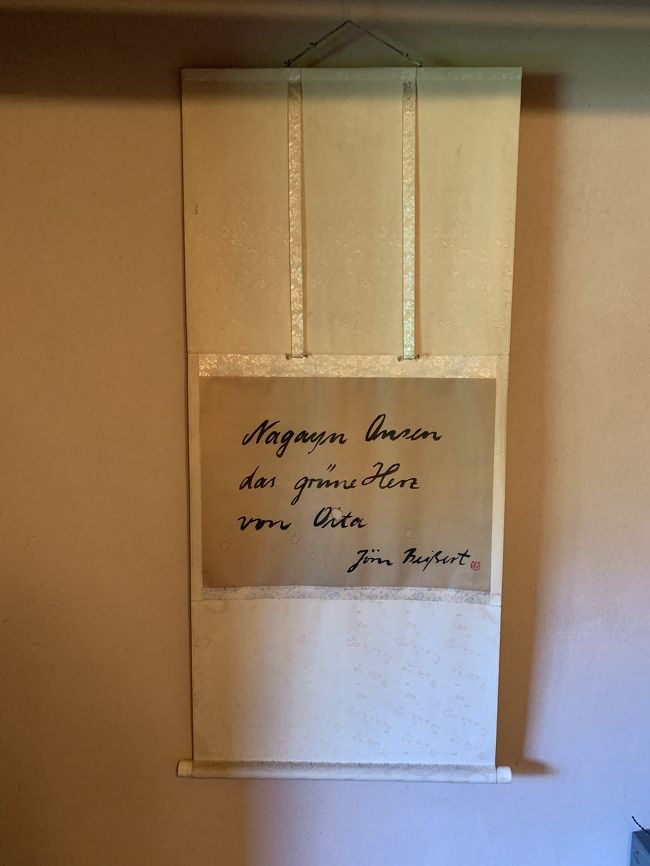 Nagayu Onsen
das grüne Herz
von Oita
Jörn Beißert